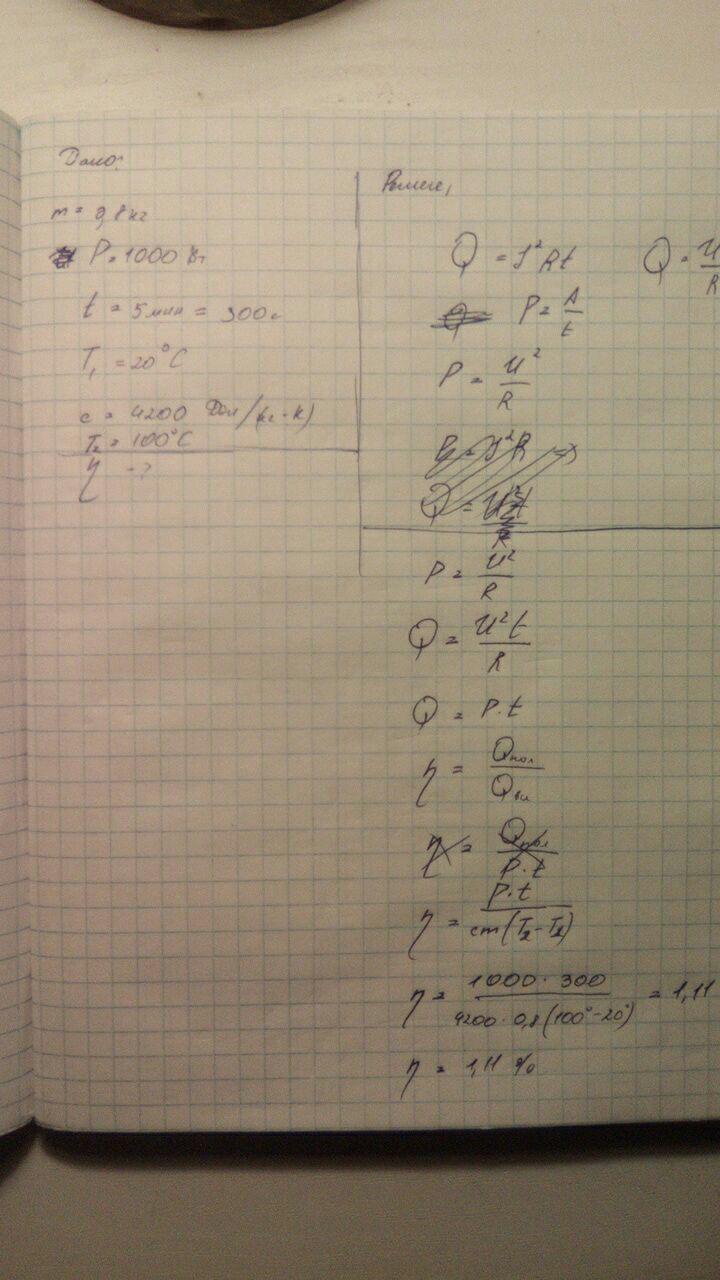 Дано:
m = 0,8 кг
P = 1000 Вт
t = 5 мин = 300 с
T₁ = 20°C
c = 4200 Дж/(кг·К)
T₂ = 100°C
η - ?
Q = J²Rt
Q = U
R
P = A/t
P = U²/R
P = U²/R
Q = U²t/R
Q = P·t
η = Qпол/Qвы
η = Qпол/P·t
η = P·t/cm(T₂-T₁)
η = 1000·300/4200·0,8(100°-20°) = 1,11
η = 1,11 %